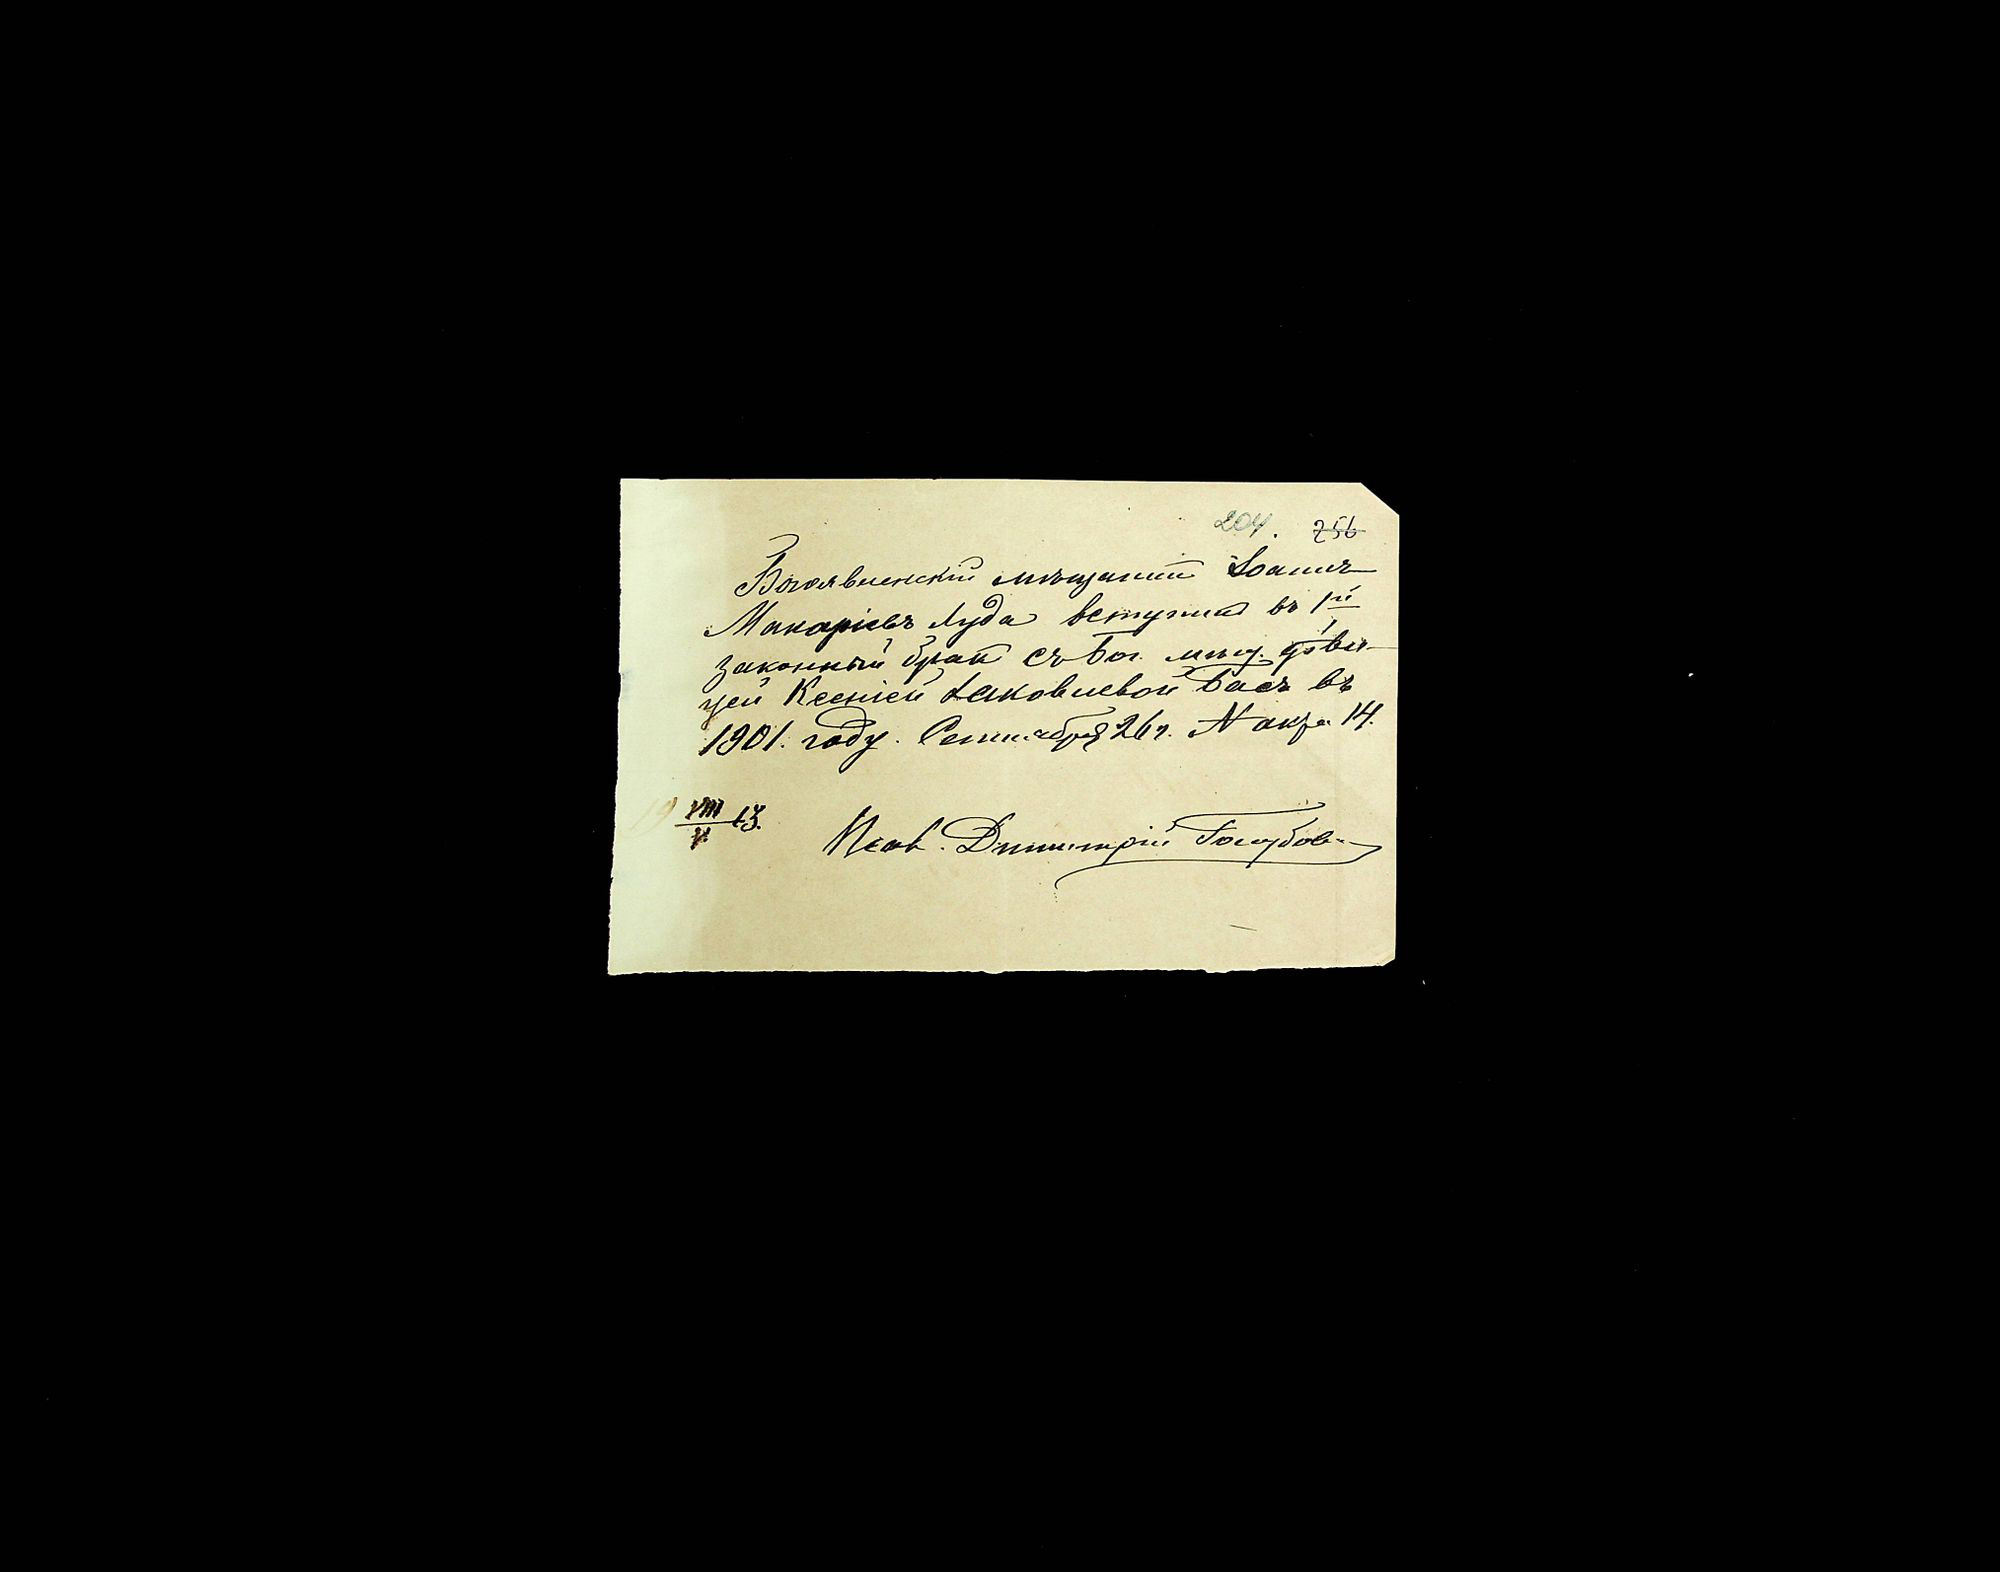 204. 256
Богоявленскій мѣщанин Іоаннъ
Макаріевъ Луда вступил въ 1й
законный брак съ Бог. мѣщ. дѣви-
цей Ксеніей Іаковлевой Басъ въ
1901. году. Сентября 26 ч. N акта 14.
VIII 13.
Псал. Димитрій Голубов